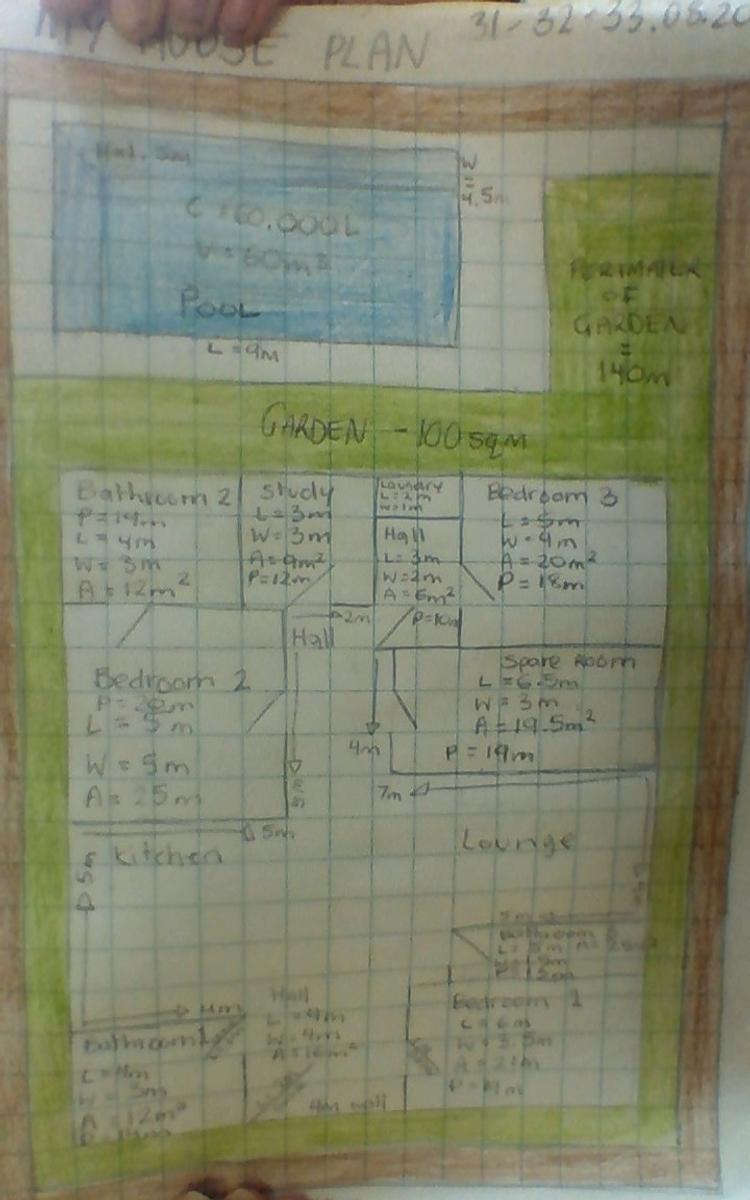 MY HOUSE PLAN
31-32-33.08.20
W
=
4.5m
C = 60.000L
V = 60m³
POOL
L = 9m
PERIMATER
OF
GARDEN
=
140m
GARDEN - 100sqm
Bathroom 2
P = 14m
L = 4m
W = 3m
A = 12m²
Study
L = 3m
W = 3m
A = 9m²
P = 12m
Laundry
L = 2m
W = 1m
Hall
L = 3m
W = 2m
A = 6m²
P = 10m
Bedroom 3
L = 5m
W = 4m
A = 20m²
P = 18m
2m
Hall
4m
Bedroom 2
P = 20m
L = 5m
W = 5m
A = 25m
Spare Room
L = 6.5m
W = 3m
A = 19.5m²
P = 19m
7m
5m
5m
Kitchen
Lounge
4m
Bathroom 1
L = 4m
W = 3m
A = 12m²
P = 14m
Hall
L = 4m
W = 4m
A = 16m²
4m wall
Bedroom 1
L = 6m
W = 3.5m
A = 21m
P = 19m